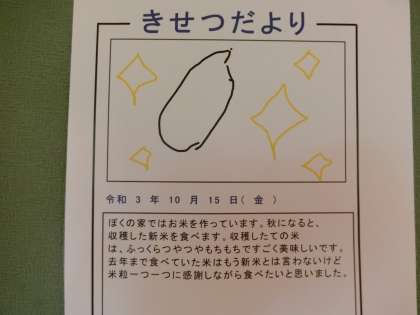 きせつだより
令和 3 年 10 月 15 日( 金 )
ぼくの家ではお米を作っています。秋になると、
収穫した新米を食べます。収穫したての米
は、ふっくらつやつやもちもちですごく美味しいです。
去年まで食べていた米はもう新米とは言わないけど
米粒一つ一つに感謝しながら食べたいと思いました。